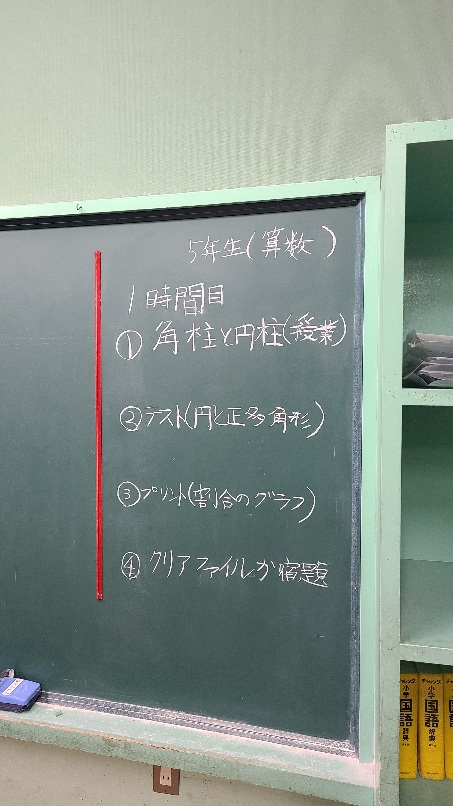 5年生(算数)
1時間目
① 角柱と円柱(授業)
②テスト(円と正多角形)
③プリント(割合のグラフ)
④ クリアファイルか宿題
チャレンジ
小学
国語
辞典
チャレンジ
小学
国語
辞典